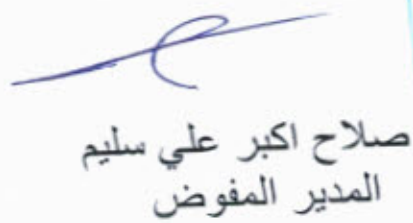 صلاح اكبر علي سليم
المدير المفوض